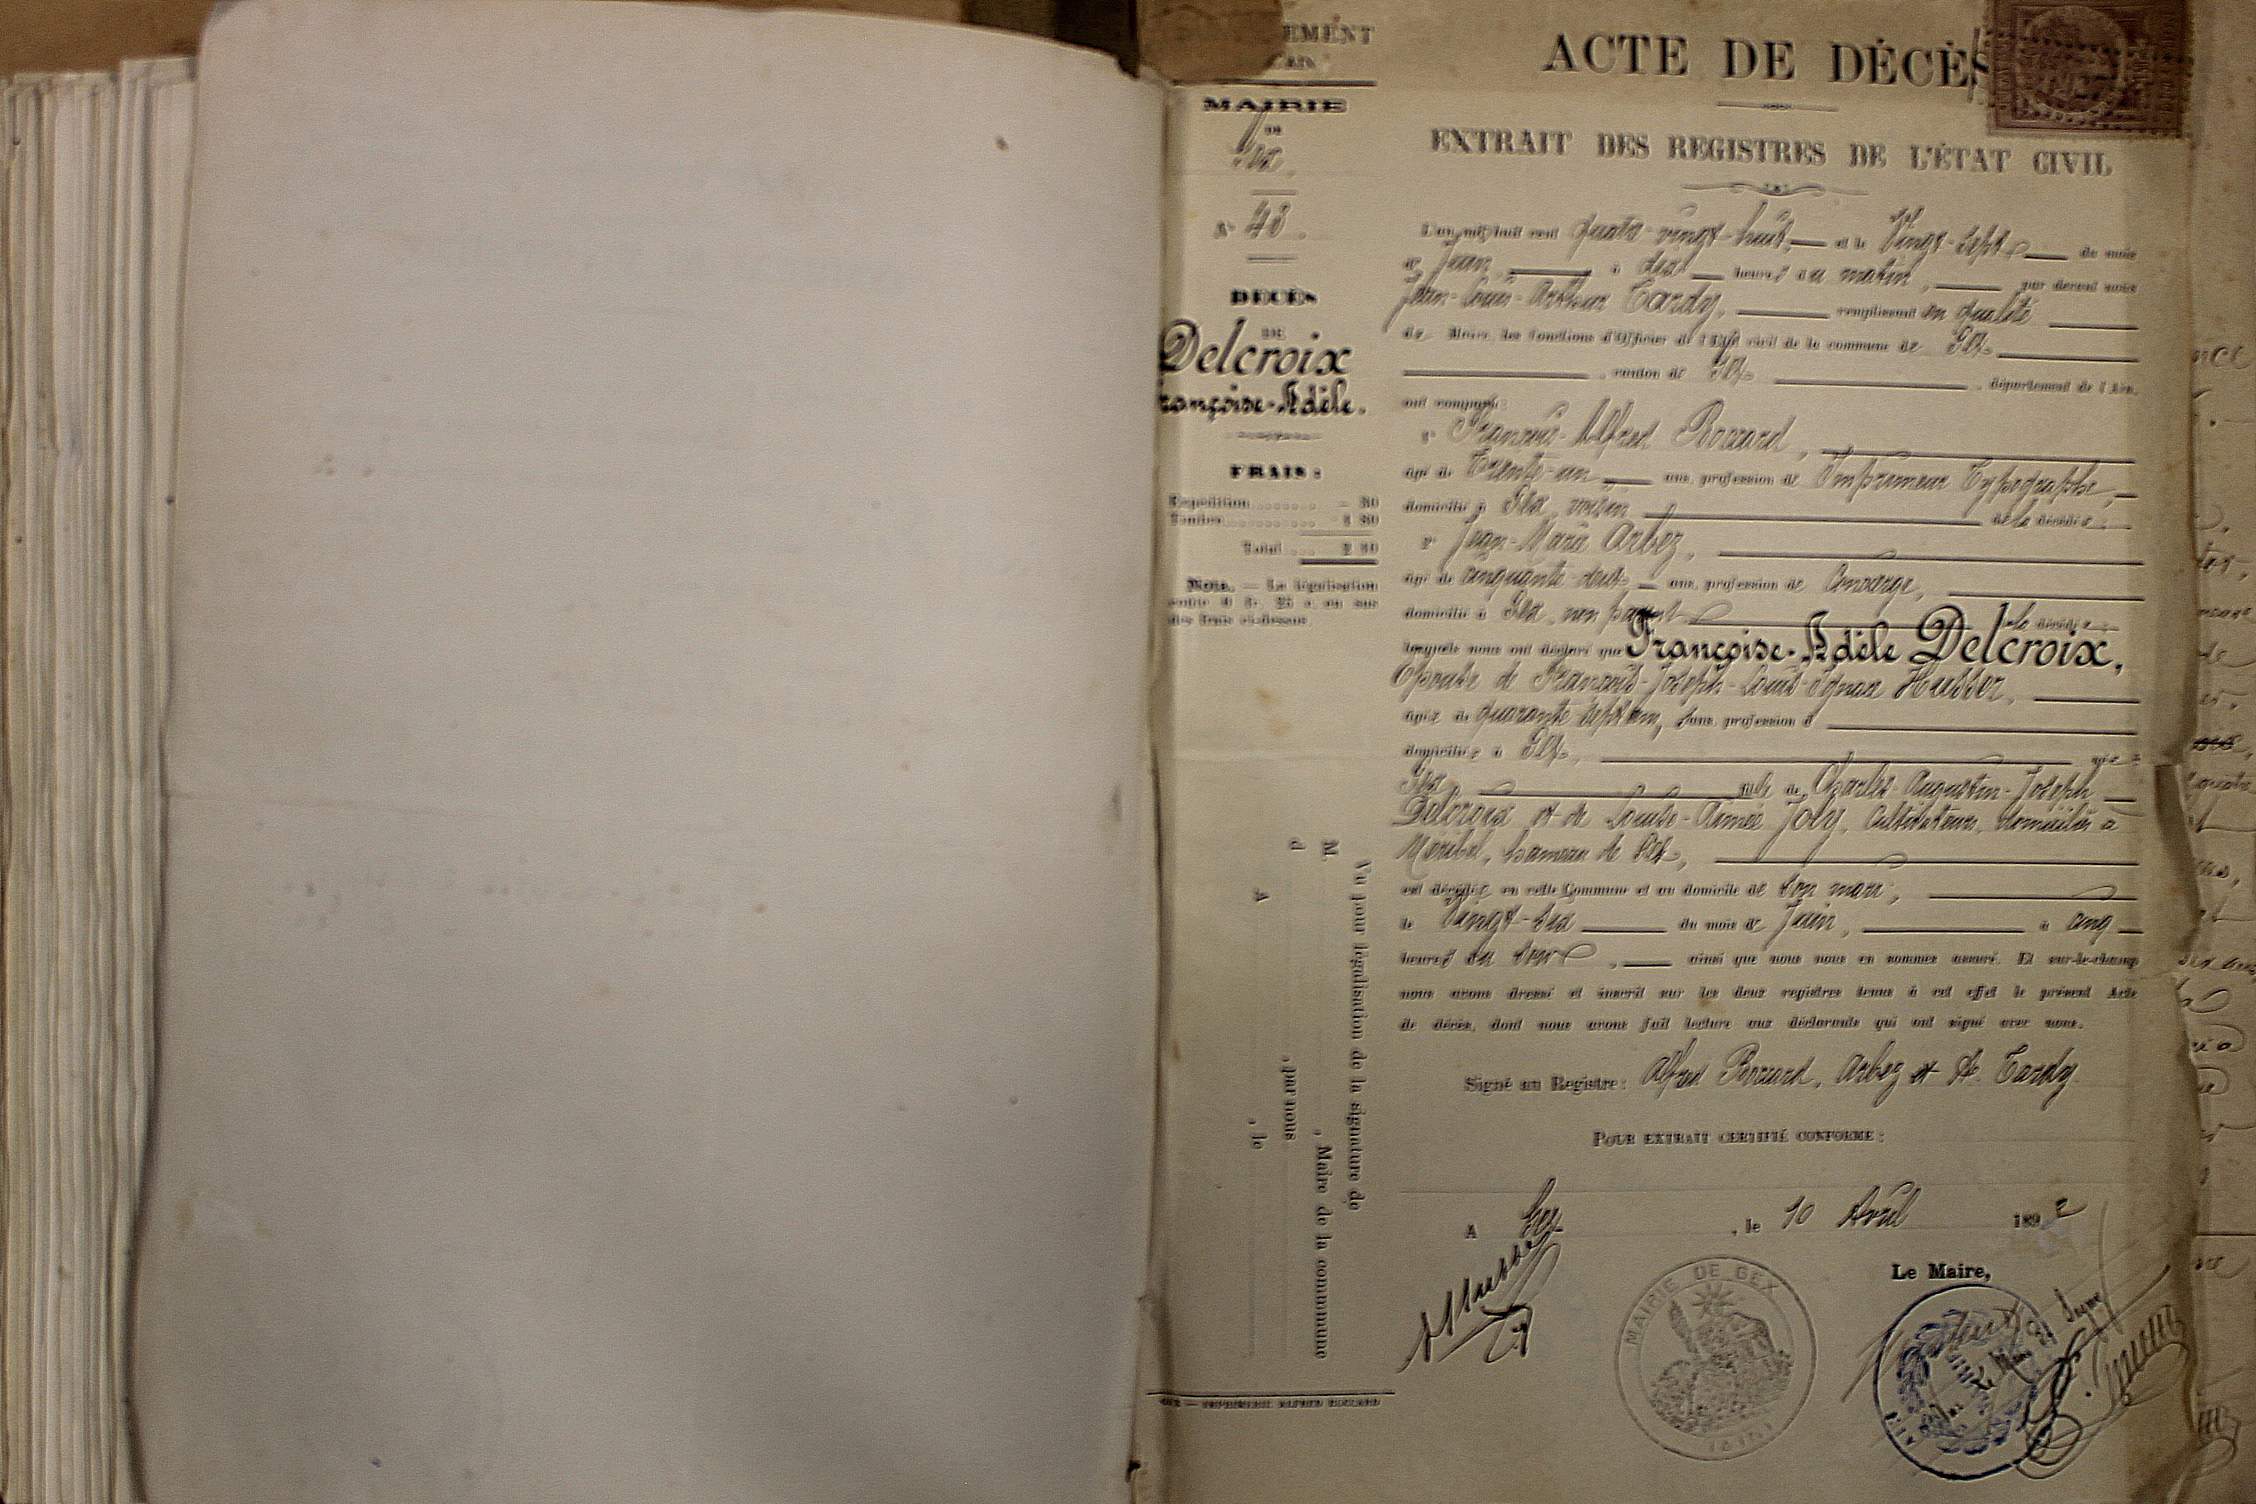 EMENT
AIN
MAIRIE
DE
Gex
N° 48.
DÉCÈS
DE
Delcroix
rançoise-Adèle.
FRAIS :
Expédition........ » 50
Timbre........... 1 80
Total .... 2 30
Nota. — La légalisation
coûte 0 fr. 25 c. en sus
des frais ci-dessus.
Vu pour légalisation de la signature de
M. , Maire de la commune
d , par nous
A , le
IMPRIMERIE ALFRED BOCCARD
ACTE DE DÉCÈS
EXTRAIT DES REGISTRES DE L'ÉTAT CIVIL
L'an mil huit cent quatre-vingt-huit, et le Vingt-sept du mois
de Juin, à dix heures du matin, par devant nous
Jean-Louis-Arthur Tardy, remplissant en qualité
de Maire, les fonctions d'Officier de l'État civil de la commune de Gex
, canton de Gex , département de l'Ain,
ont comparu :
1° François-Alfred Boccard,
âgé de Trente-un ans, profession de Imprimeur Typographe,
domicilié à Gex, voisin de la décédée ;
2° Jean-Marie Arbez,
âgé de cinquante-deux ans, profession de Concierge,
domicilié à Gex, non parent de la décédée ;
lesquels nous ont déclaré que Françoise-Adèle Delcroix,
Epouse de François-Joseph-Louis-Ignace Husser,
âgée de quarante sept ans, sans profession d
domiciliée à Gex, née à
Gex fille de Charles-Augustin-Joseph
Delcroix et de Louise-Aimée Joly, Cultivateurs, domiciliés à
hameau de Gex,
est décédée en cette Commune et au domicile de son mari,
le Vingt-six du mois de Juin, à cinq
heures du soir, ainsi que nous nous en sommes assuré. Et sur-le-champ
nous avons dressé et inscrit sur les deux registres tenus à cet effet le présent Acte
de décès, dont nous avons fait lecture aux déclarants qui ont signé avec nous.
Signé au Registre : Alfred Boccard, Arbez et A. Tardy.
POUR EXTRAIT CERTIFIÉ CONFORME :
A Gex , le 10 Avril 1892
Le Maire,
MAIRIE DE GEX
(AIN)